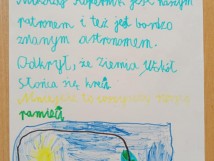 Mikołaj Kopernik jest naszym
patronem i też jest bardzo
znanym astronomem.
Odkrył, że Ziemia wokół
Słońca się kręci
pamięci